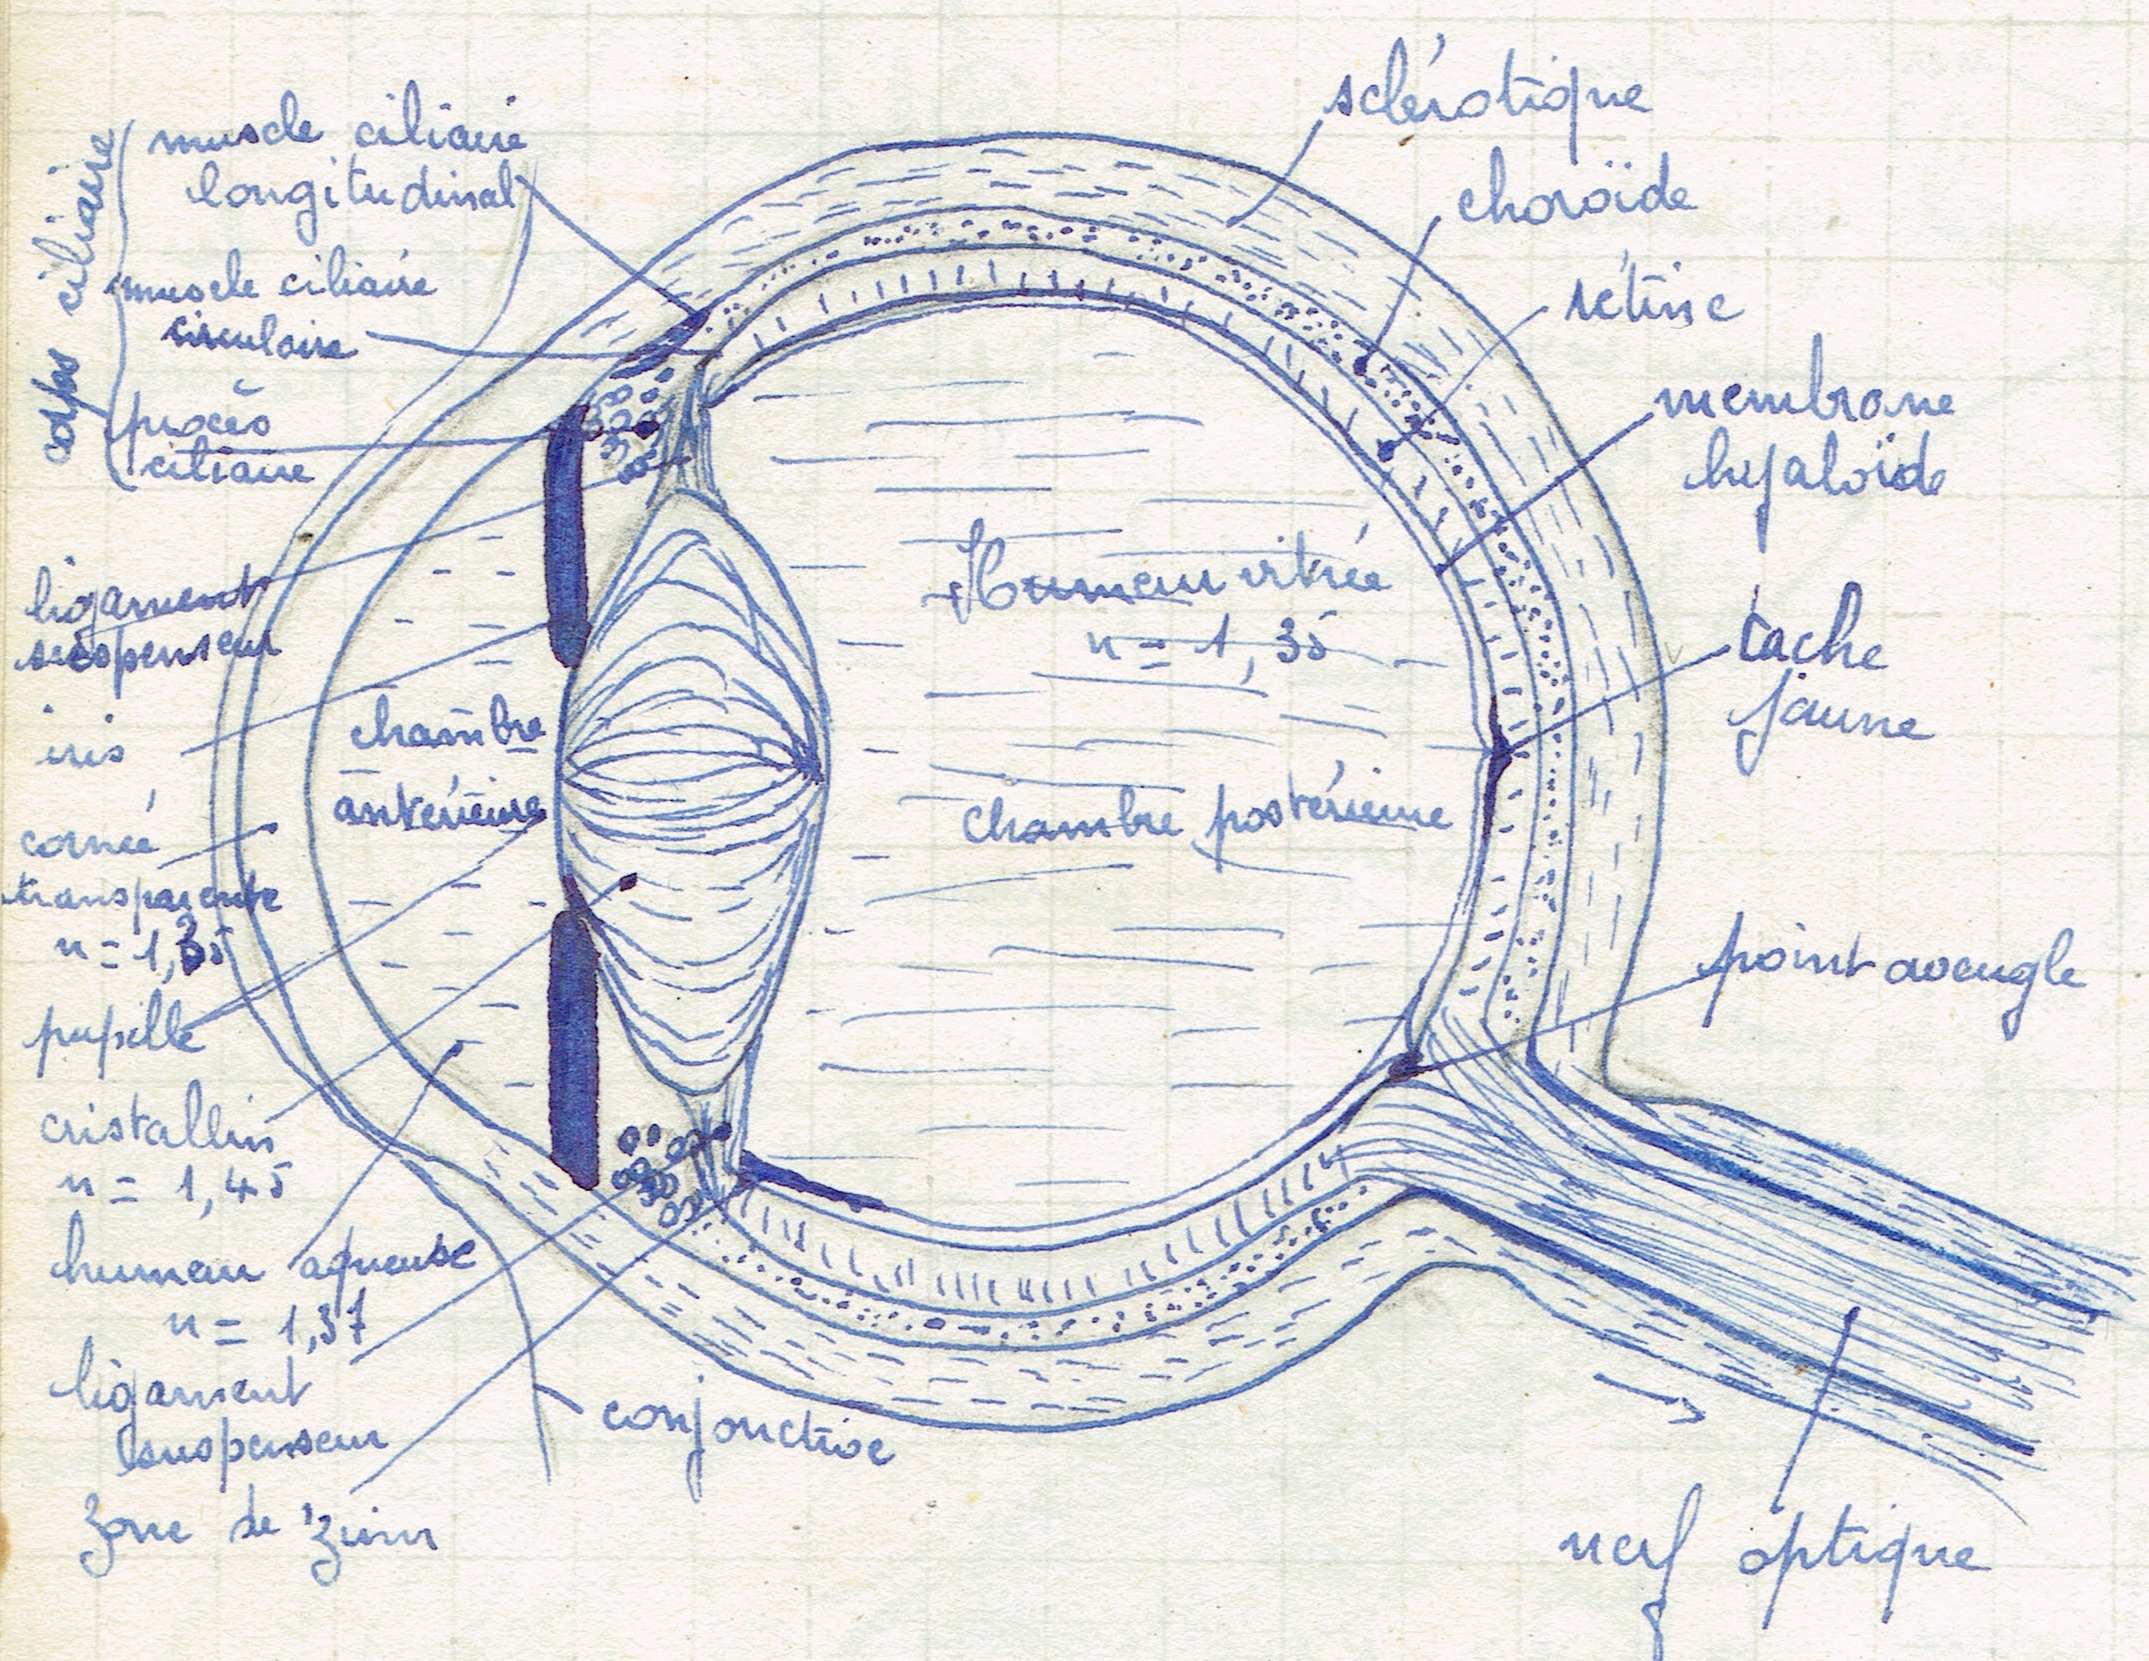 corps ciliaire
muscle ciliaire
longitudinal
muscle ciliaire
circulaire
procès
ciliaire
ligament
suspenseur
iris
cornée
transparente
n = 1,35
pupille
cristallin
n = 1,45
humeur aqueuse
n = 1,37
ligament
suspenseur
zone de zinn
conjonctive
chambre
antérieure
Humeur vitrée
n = 1,35
chambre postérieure
sclérotique
choroïde
rétine
membrane
hyaloïde
tache
jaune
point aveugle
nerf optique